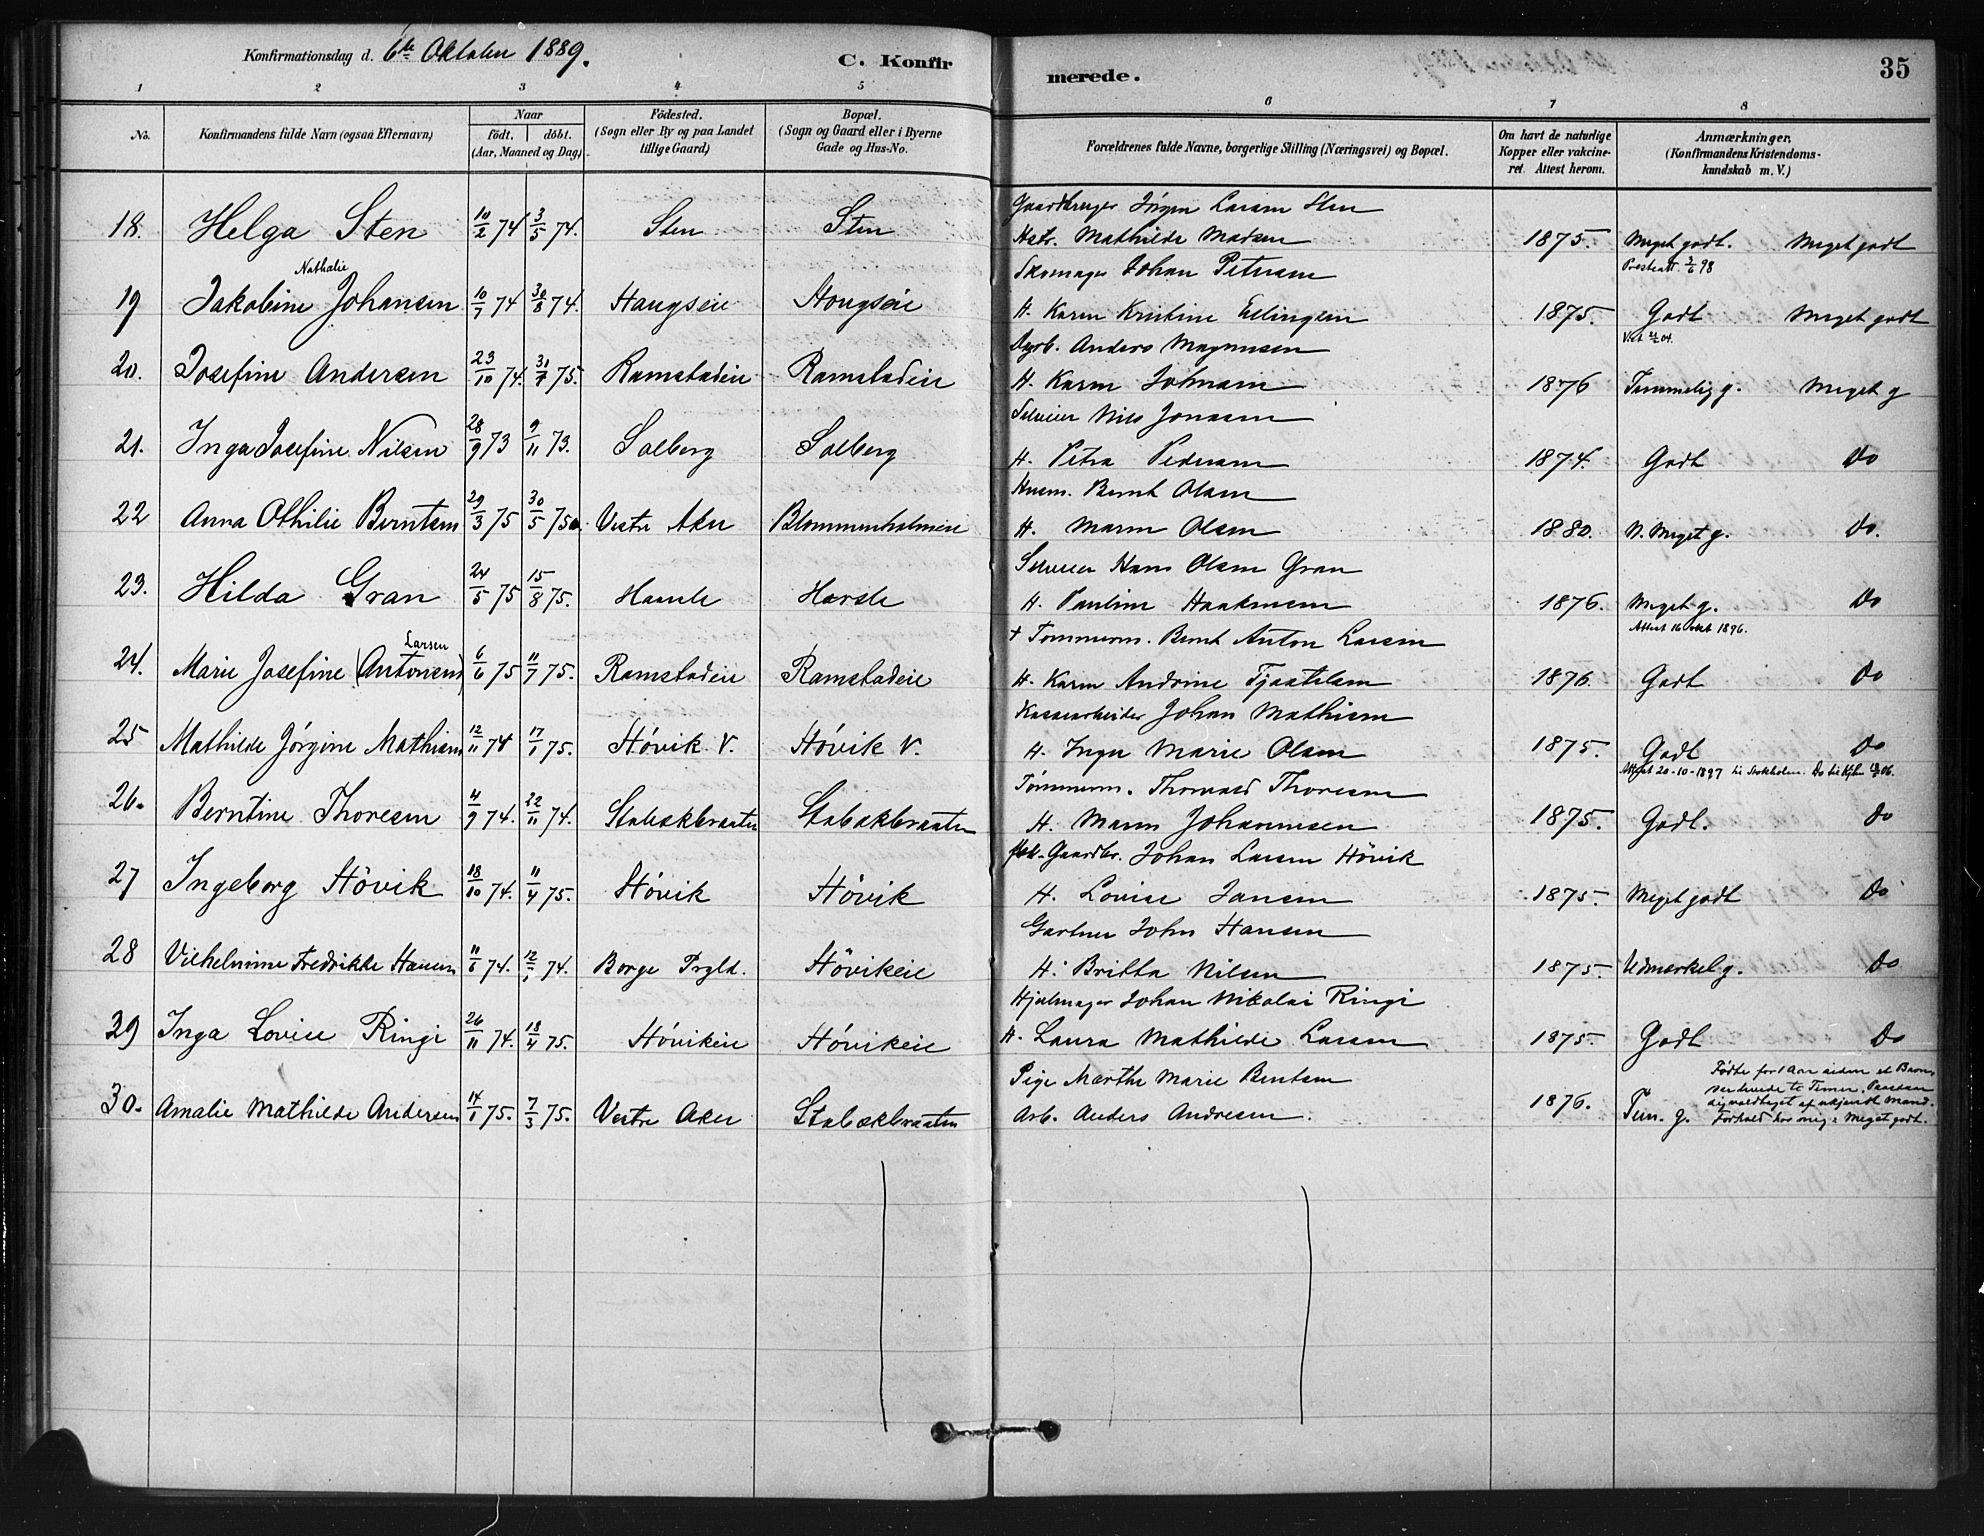 Konfirmationsdag d. 6te Oktober 1889.
C. Konfirmerede.
35
1 2 3 4 5 6 7 8
No.
Konfirmandens fulde Navn (ogsaa Efternavn)
Naar
födt. döbt.
(Aar, Maaned og Dag)
Födested.
(Sogn eller By og paa Landet
tillige Gaard)
Bopæl.
(Sogn og Gaard eller i Byerne
Gade og Hus-No.
Forældrenes fulde Navne, borgerlige Stilling (Næringsvei) og Bopæl.
Om havt de naturlige
Kopper eller vakcine-
ret. Attest herom.
Anmærkninger.
(Konfirmandens Kristendoms-
kundskab m. V.)
Gaardbruger Jörgen Larsen Sten
18. Helga Sten 10/2 74 3/5 74. Sten Sten Hstr. Mathilde Madsen 1875. Meget godt. Meget godt
Presteatt. 3/6 98
Skomager Johan Petersen
Nathalie
19 Jakobine Johansen 10/7 74 30/8 74. Haugseie Hougseie H. Karen Kristine Ellingsen 1875. Godt Meget godt
Dagb. Anders Magnussen
20. Josefine Andersen 23/10 74. 31/7 75. Ramstadeie Ramstadeie H. Karen Johnsen 1876 Temmelig g. Meget g
Selveier Nils Jonassen
21. Inga Josefine Nilsen 28/9 73 9/11 73. Solberg Solberg H. Petra Pedersen 1874. Godt Do
Husm. Bernt Olsen
22 Anna Othilie Berntsen 29/3 75 30/5 75. Vestre Aker Blommenholmeie H. Maren Olsen 1880. N. Meget g. Do.
Selveier Hans Olsen Gran
23. Hilda Gran 24/5 75 15/8 75. Harsle H. Pauline Haakensen 1876. Meget g. Do
Attest 16 1896.
† Tømmerm. Bernt Anton Larsen
Larsen
24. Marie Josefine (Antonsen) 6/6 75 11/7 75. Ramstadeie Ramstadeie H. Karen Andrine 1876. Godt Do
Johan Mathisen
25 Mathilde Jörgine Mathisen 12/11 74 17/1 75. Hövik V. Hövik V. H. Inger Marie Olsen 1875. Godt Do
Attest 20-10-1897 til Stokholm. Do til Kjbn 06.
Tømmerm. Thorvald Thoresen
26. Berntine Thoresen 4/9 74. 22/11 74. Stabækbraaten Stabækbraaten H. Maren Johannesen 1875. Godt. Do
Gaardbr. Johan Larsen Hövik
27 Ingeborg Hövik 18/10 74. 11/4 75. Hövik Hövik H. Lovise Jansen 1875. Meget godt Do
Gartner John Hansen
28 Vilhelmine Fredrikke Hansen 11/6 74. 74. Borge Prgld. Hövikeie H. Britta Nilsen 1875. Udmerket g. Do
Hjulmager Johan Nikolai Ringi
29 Inga Lovise Ringi 26/11 74. 18/4 75. Hövikeie Hövikeie H. Laura Mathilde Larsen 1875. Godt Do
Pige Marthe Marie Berntsen
30. Amalie Mathilde Andersen 14/1 75. 7/3 75. Vestre Aker Stabækbraaten Arb. Anders Andresen. 1876. Tem. g.
Födte for 1 Aar siden et Barn,
der levede 12 Timer. Paastaar
sig voldtaget af ukjendt Mand.
Forhold hos mig: Meget godt.